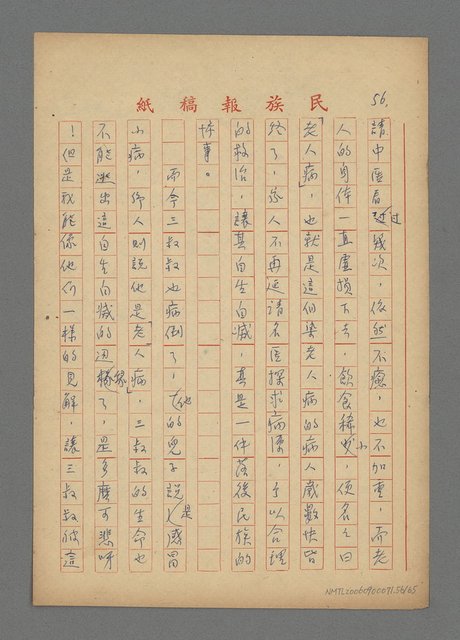 民族報稿紙
56.
請中医看过幾次,依然不癒,也不加重,而老
人的身体一直虛損下去,飲食稀少,便名之曰
「老人病」,也就是這個染老人病的病人歲數快皆
終了,家人不再延請名医探求病源,予以合理
的救治,讓其自生自滅,真是一件落後民族的
慘事。
而今三叔叔也病倒了,他的兒子說是感冒
小病,外人則說他是「老人病」,三叔叔的生命也
不能逃出這自生自滅的邊緣了,是多麼可悲呀
!但是我能像他們一樣的見解,讓三叔叔被這
NMTL20060900071.56/65